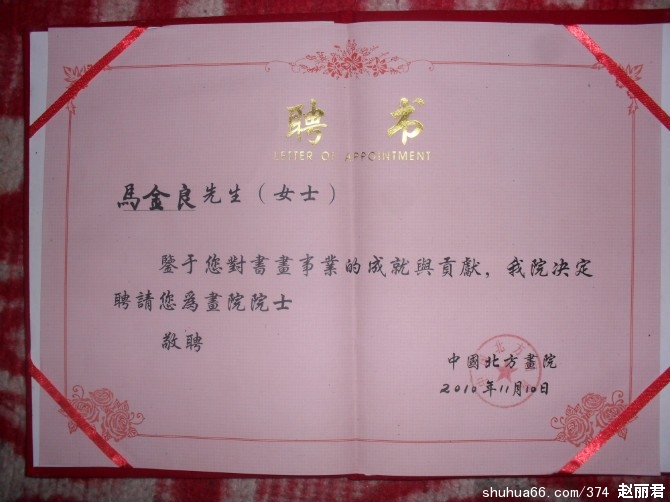 聘书
LETTER OF APPOINTMENT
馬金良先生（女士）
鑒于您對書畫事業的成就與貢獻，我院决定
聘請您爲畫院院士
敬聘
中國北方畫院
2010年11月10日
shuhua66.com/374 赵丽君